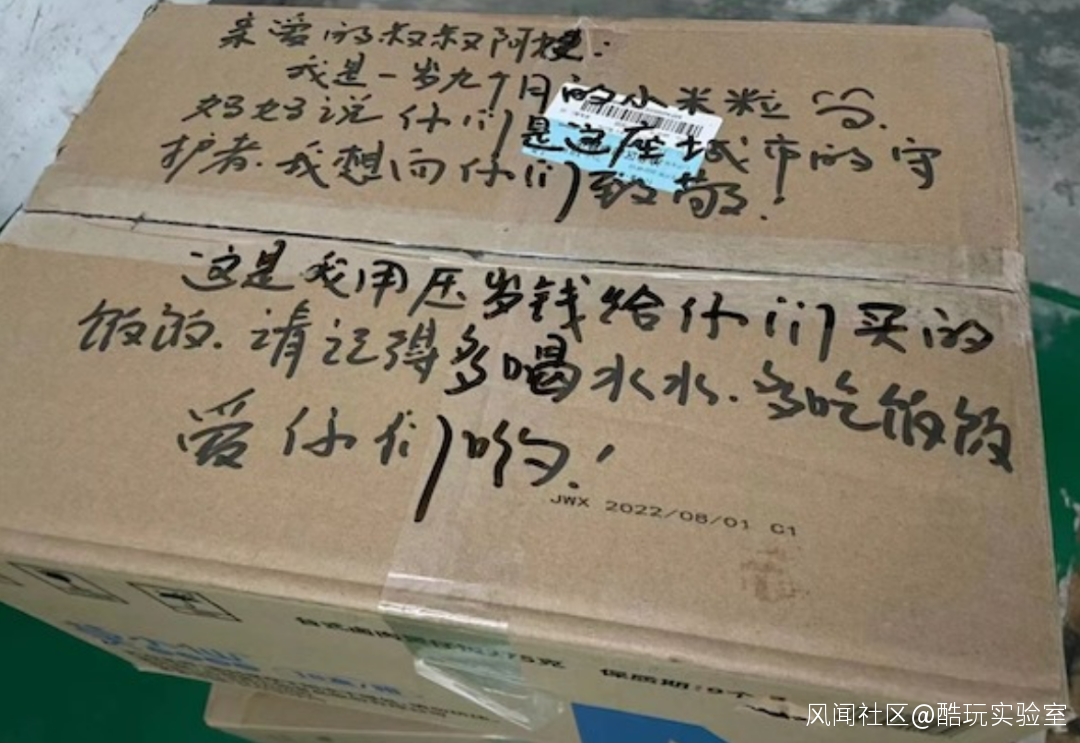 亲爱的叔叔阿姨：
我是一岁九个月的小米粒
妈妈说你们是这座城市的守
护者.我想向你们致敬！
这是我用压岁钱给你们买的
饭饭.请记得多喝水水.多吃饭饭
爱你们哟！
JWX 2022/08/01 C1
保质期:9个
风闻社区@酷玩实验室